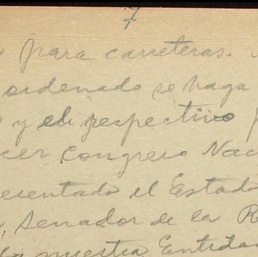 7
para carreteras.
ordenado se haga
y el respectivo
cer Congreso Nac
esentado el Estado
, Senador de la R
la nuestra Entidad